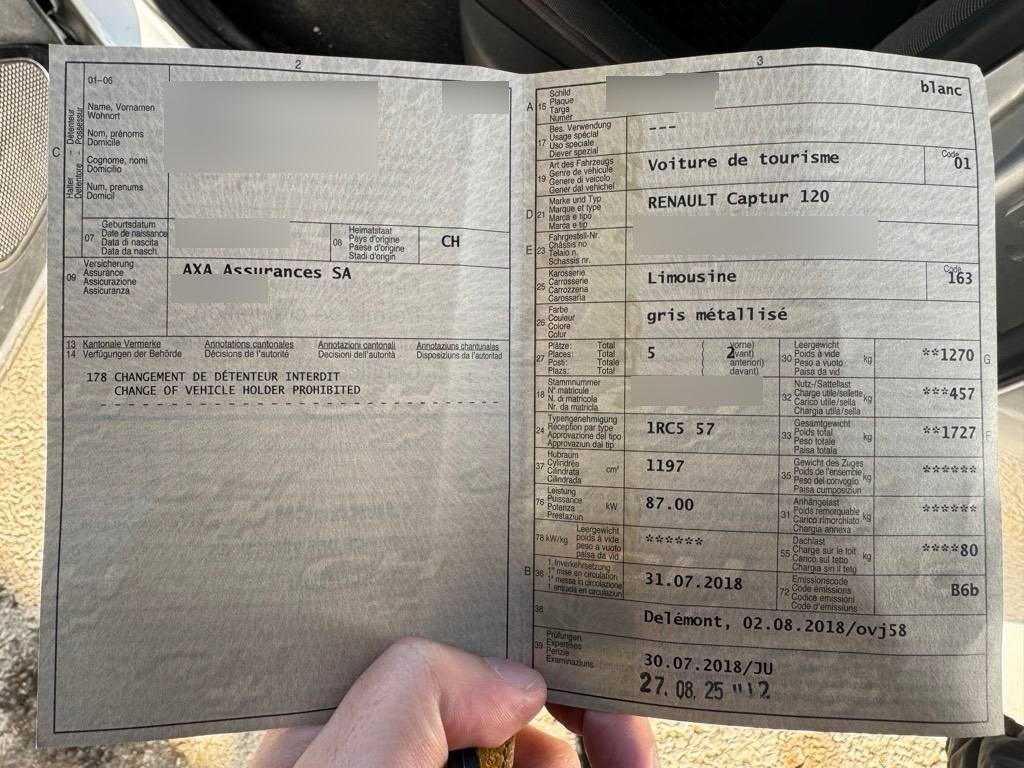 2
01-06
C
Halter - Détenteur
Detentore - Possessur
Name, Vornamen
Wohnort
Nom, prénoms
Domicile
Cognome, nomi
Domicilio
Num, prenums
Domicil
07
Geburtsdatum
Date de naissance
Data di nascita
Data da nasch.
08
Heimatstaat
Pays d'origine
Paese d'origine
Stadi d'origin
CH
09
Versicherung
Assurance
Assicurazione
Assicuranza
AXA Assurances SA
13 Kantonale Vermerke Annotations cantonales Annotazioni cantonali Annotaziuns chantunales
14 Verfügungen der Behörde Décisions de l'autorité Decisioni dell'autorità Disposiziuns da l'autoritad
178 CHANGEMENT DE DÉTENTEUR INTERDIT
CHANGE OF VEHICLE HOLDER PROHIBITED
3
A 15
Schild
Plaque
Targa
Numer
blanc
17
Bes. Verwendung
Usage spécial
Uso speciale
Diever spezial
---
19
Art des Fahrzeugs
Genre de véhicule
Genere di veicolo
Gener dal vehichel
Voiture de tourisme
Code
01
D 21
Marke und Typ
Marque et type
Marca e tipo
Marca e tip
RENAULT Captur 120
E 23
Fahrgestell-Nr.
Châssis no
Telaio n.
Schassis nr.
25
Karosserie
Carrosserie
Carrozzeria
Carossaria
Limousine
Code
163
26
Farbe
Couleur
Colore
Colur
gris métallisé
27
Plätze: Total
Places: Total
Posti: Totale
Plazs: Total
5
2
vorne)
avant)
anteriori)
davant)
30
Leergewicht
Poids à vide
Peso a vuoto
Paisa da vid
kg
**1270
G
18
Stammnummer
N° matricule
N. di matricola
Nr. da matricla
32
Nutz-/Sattellast
Charge utile/sellette
Carico utile/sella
Chargia utila/sella
kg
***457
24
Typengenehmigung
Réception par type
Approvazione del tipo
Approvaziun dal tip
1RC5 57
33
Gesamtgewicht
Poids total
Peso totale
Paisa totala
kg
**1727
F
37
Hubraum
Cylindrée
Cilindrata
Cilindrada
cm³
1197
35
Gewicht des Zuges
Poids de l'ensemble
Peso del convoglio
Paisa cumposiziun
kg
******
76
Leistung
Puissance
Potenza
Prestaziun
kW
87.00
31
Anhängelast
Poids remorquable
Carico rimorchiato
Chargia annexa
kg
******
78 kW/kg
Leergewicht
poids à vide
peso a vuoto
paisa da vid
******
55
Dachlast
Charge sur le toit
Carico sul tetto
Chargia sin il tetg
kg
****80
B 36
1. Inverkehrsetzung
1re mise en circulation
1a messa in circolazione
1. entrada en circulaziun
31.07.2018
72
Emissionscode
Code émissions
Codice emissioni
Code d'emissiuns
B6b
38
Delémont, 02.08.2018/ovj58
39
Prüfungen
Expertises
Perizie
Examinaziuns
30.07.2018/JU
27.08.25